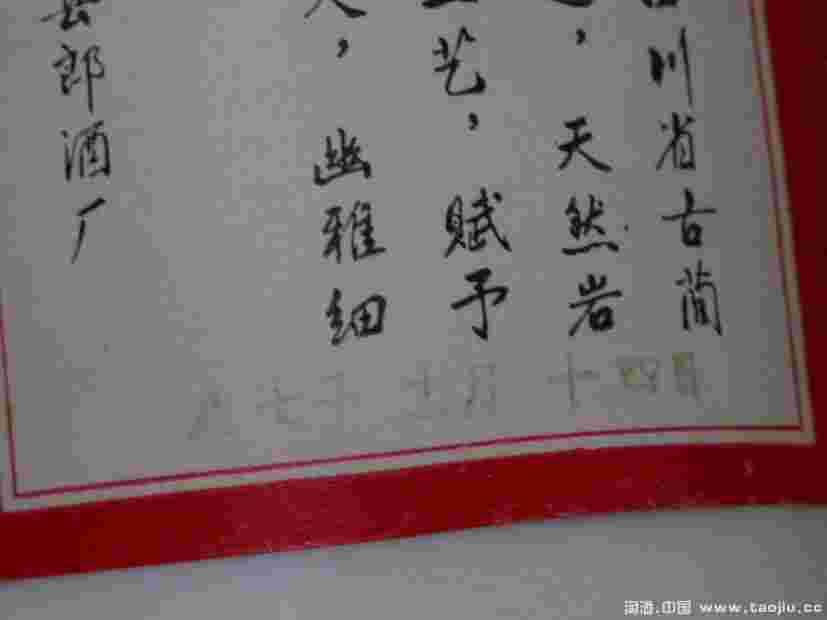 川省古蔺
，天然岩
艺，赋予
，幽雅细
郎酒厂
七年 七月 十四日
淘酒.中国 www.taojiu.cc